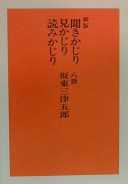 新版
聞きかじり
見かじり
読みかじり
八世
坂東三津五郎